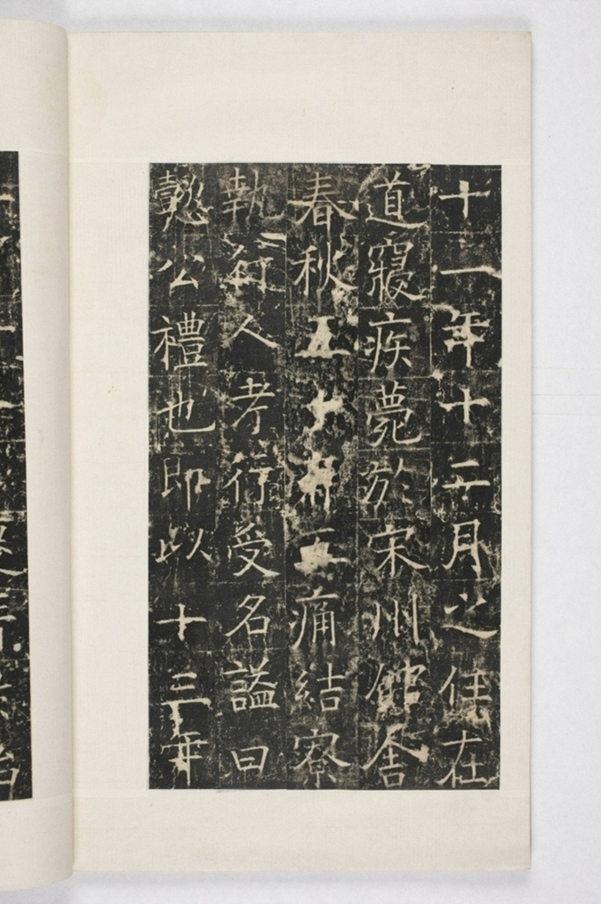 十一年十二月之任在
道寢疾薨於宋州館舍
春秋五十有五痛結寮
執人考行受名謚曰
懿公禮也即以十三年